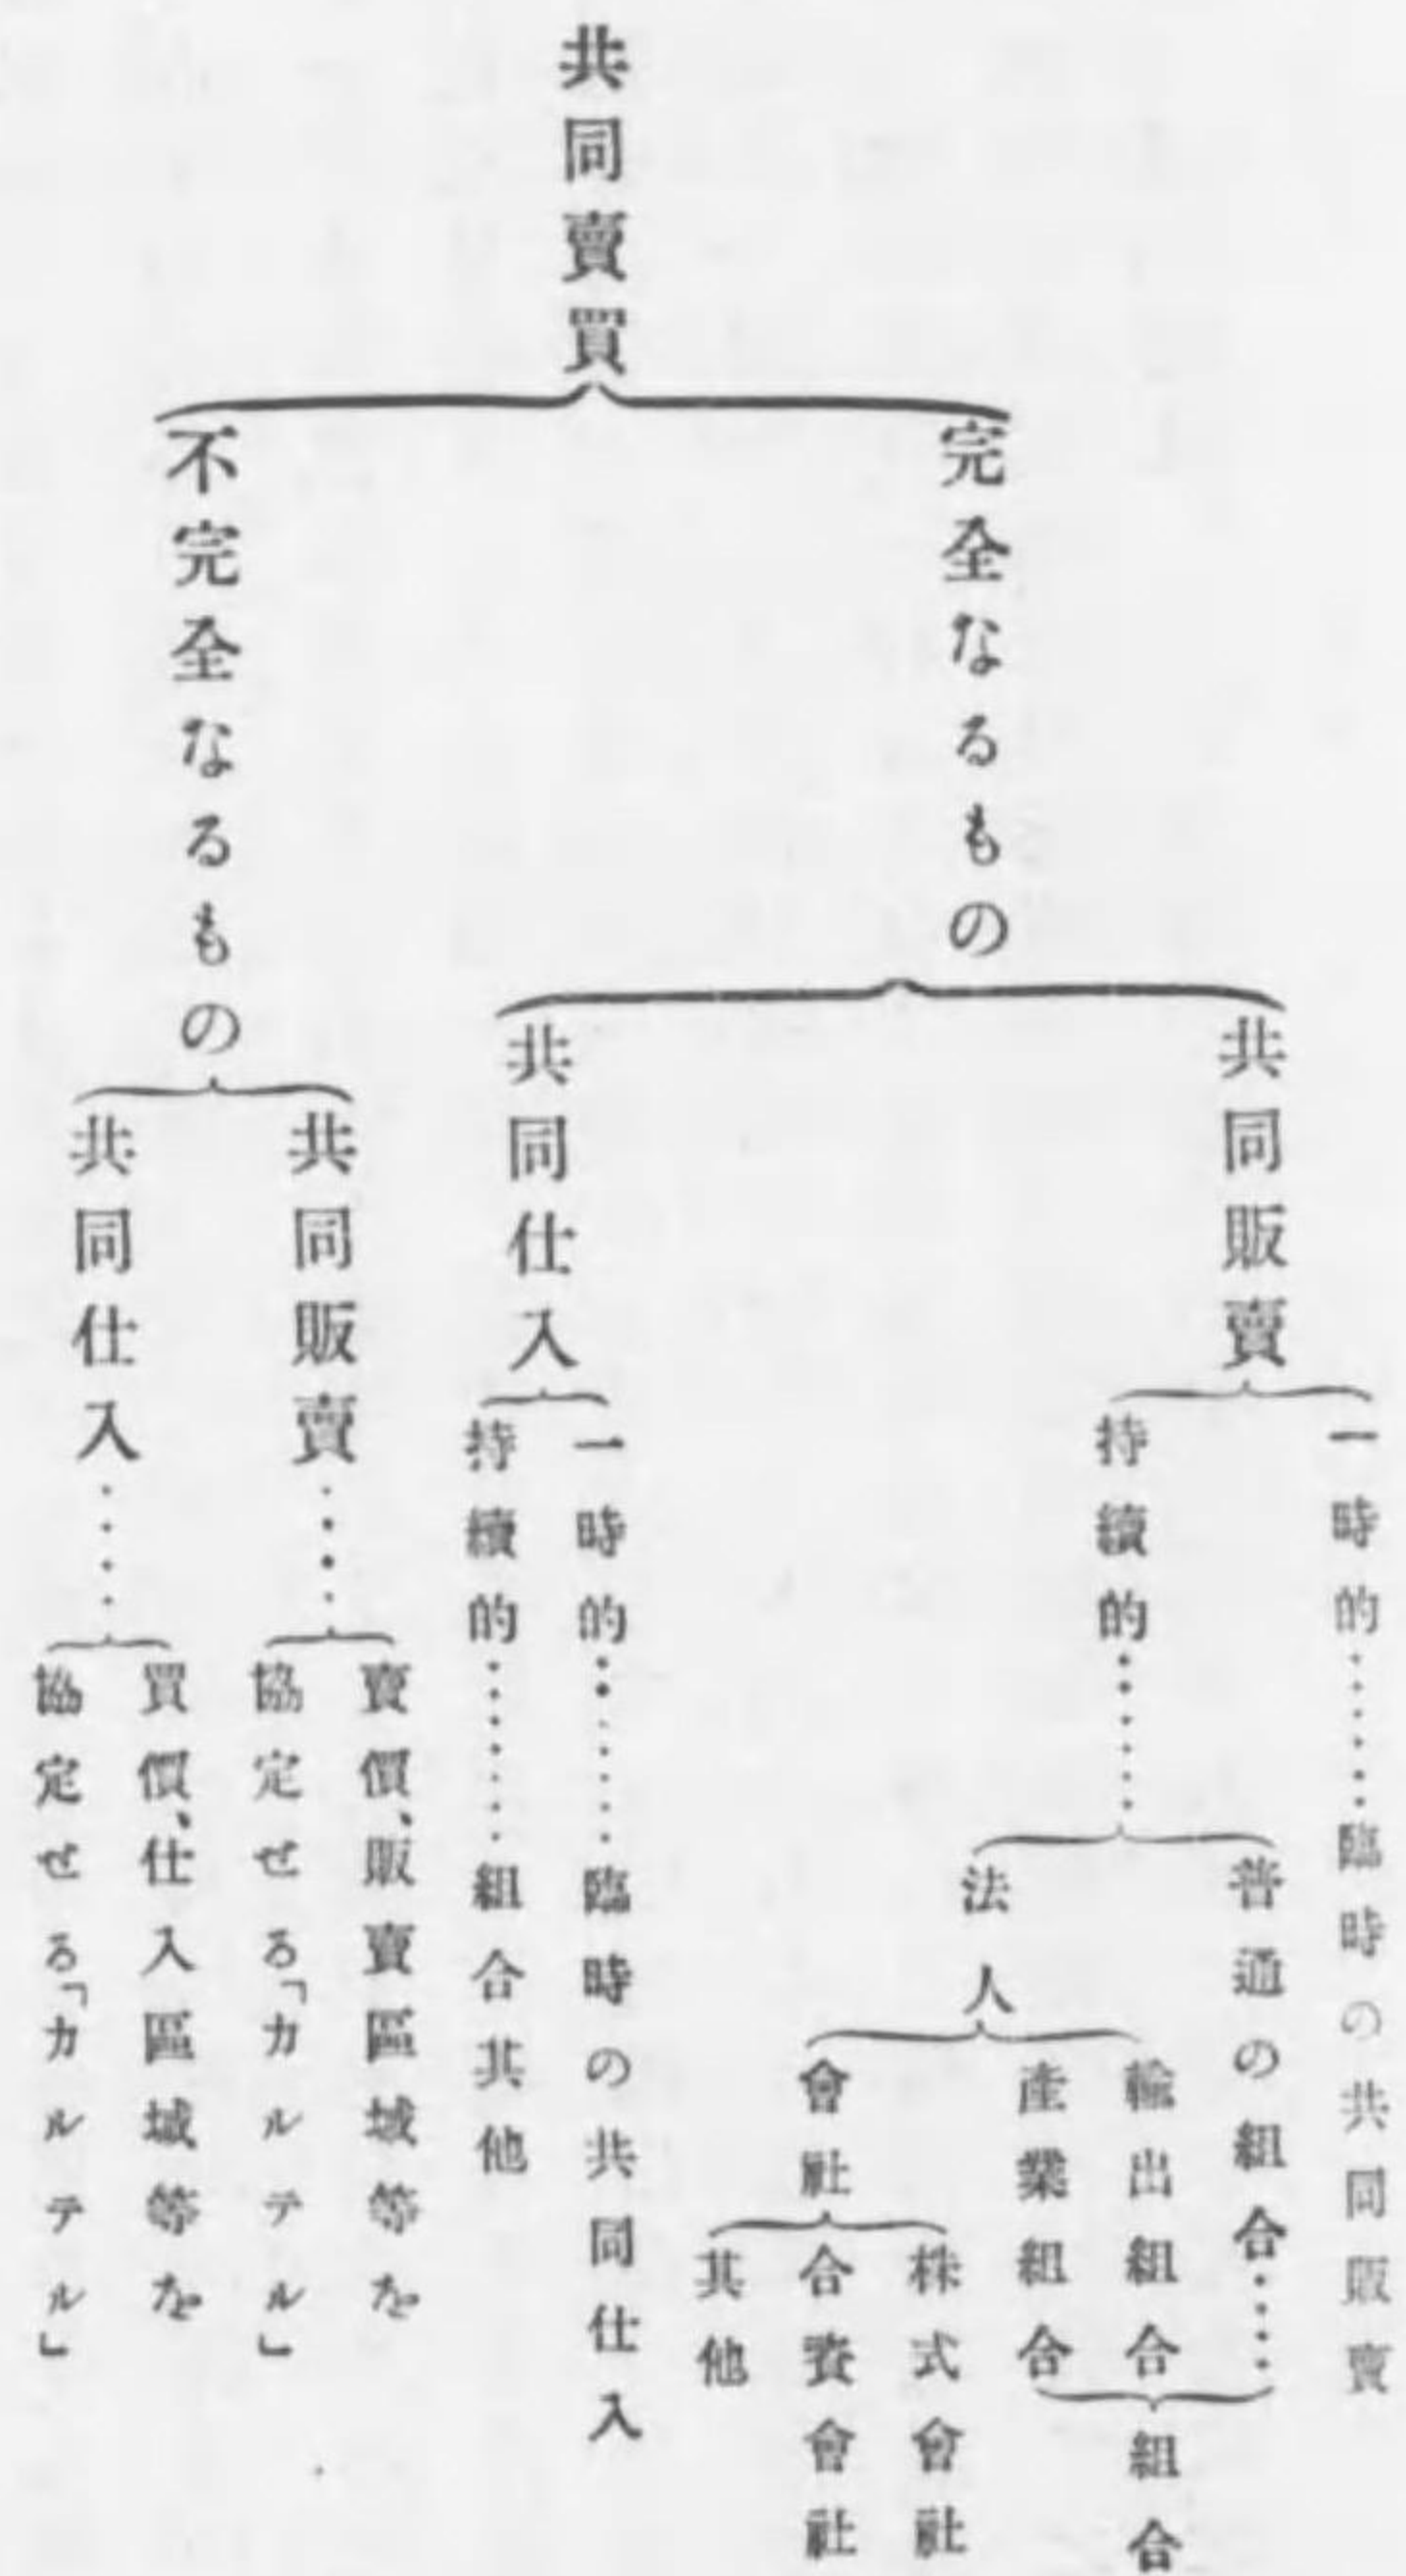 共同賣買
完全なるもの
共同販賣
一時的……臨時の共同販賣
持續的……
普通の組合……
法人
輸出組合
產業組合
組合
會社
株式會社
合資會社
其他
共同仕入
一時的……臨時の共同仕入
持續的……組合其他
不完全なるもの
共同販賣……
賣價、販賣區域等を
協定せる「カルテル」
共同仕入……
買價、仕入區域等を
協定せる「カルテル」